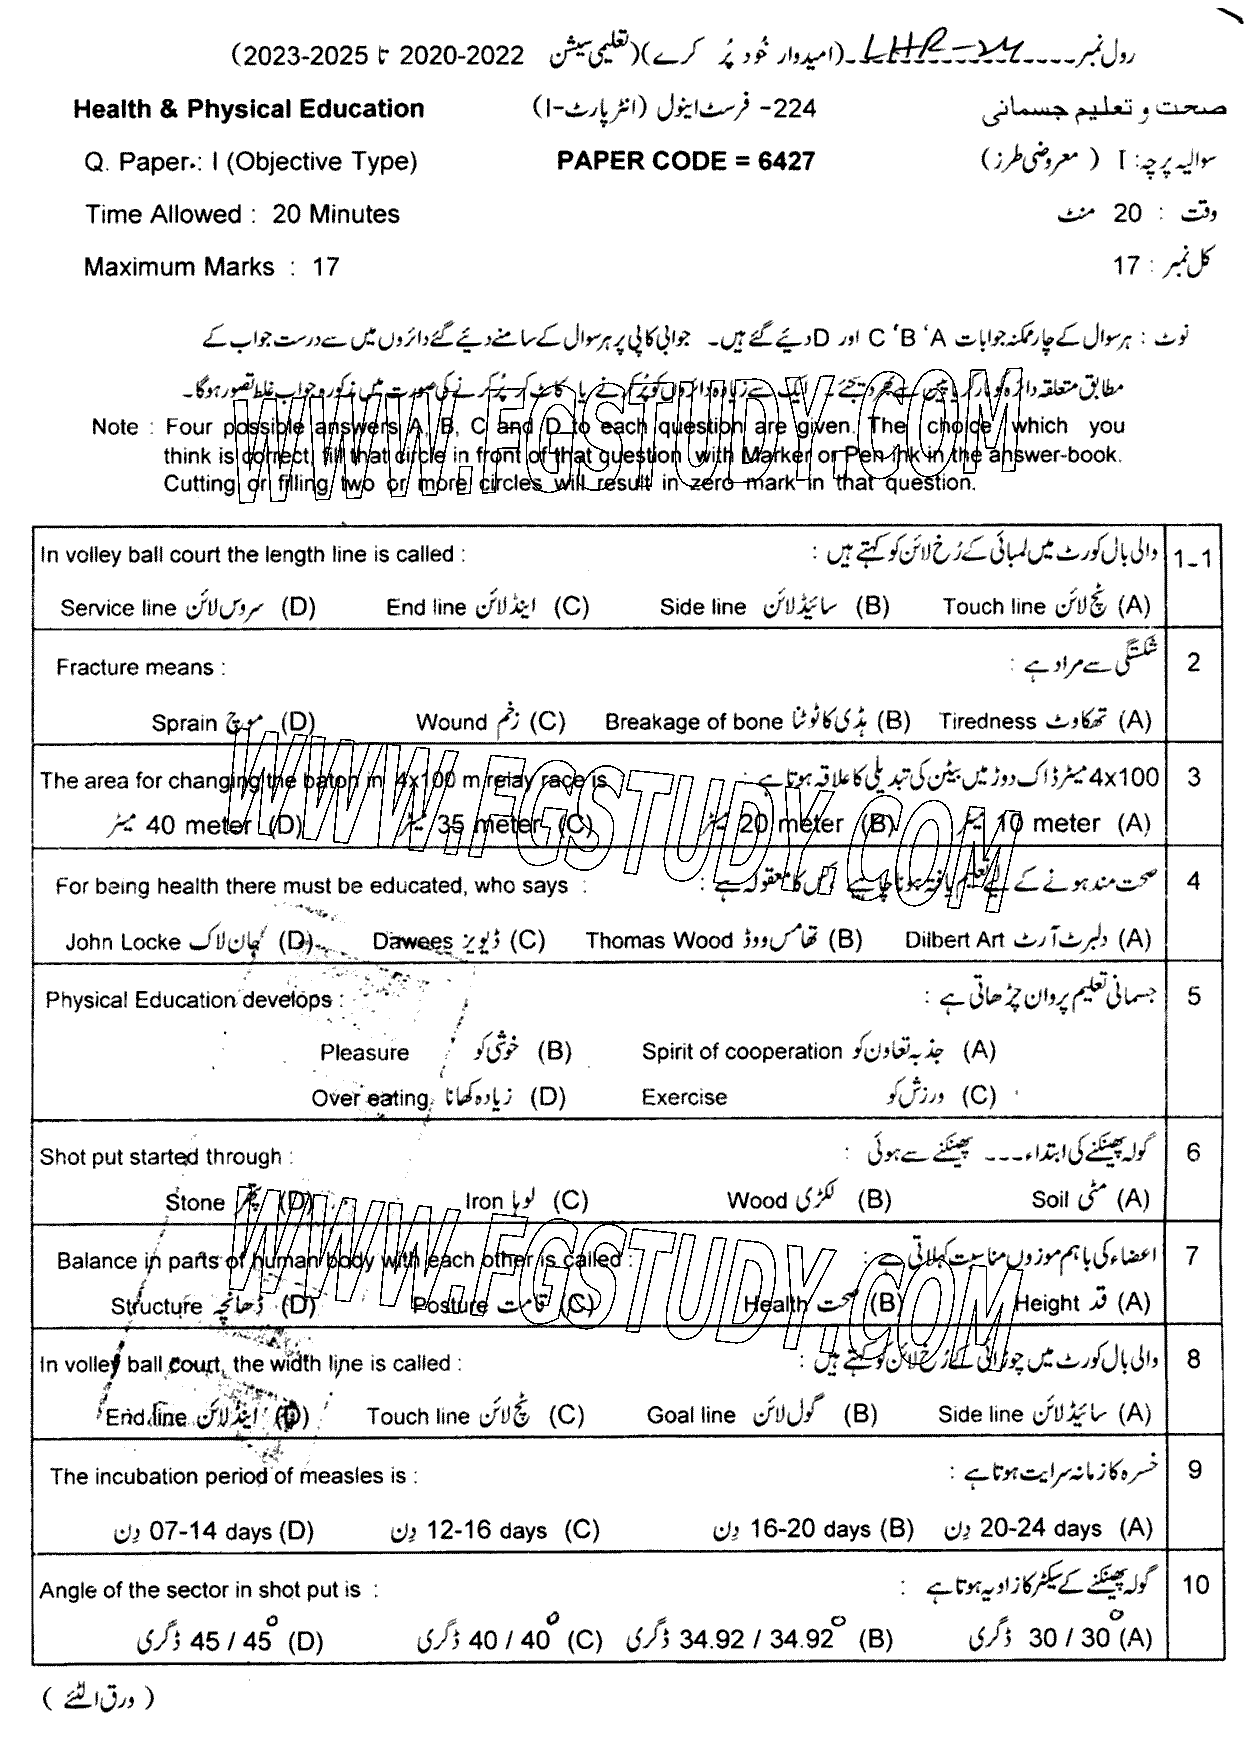 رول نمبر ------ LHR-24 -(امیدوار خود پُر کرے)(تعلیمی سیشن 2020-2022 تا 2023-2025)
Health & Physical Education 224- فرسٹ اینول (انٹر پارٹ-I) صحت و تعلیم جسمانی
Q. Paper.: I (Objective Type) PAPER CODE = 6427 سوالیہ پرچہ: I ( معروضی طرز)
Time Allowed : 20 Minutes وقت : 20 منٹ
Maximum Marks : 17 کل نمبر : 17
نوٹ : ہر سوال کے چار ممکنہ جوابات A ' B ' C اور D دیئے گئے ہیں۔ جوابی کاپی پر ہر سوال کے سامنے دیئے گئے دائروں میں سے درست جواب کے
مطابق متعلقہ دائرہ کو مارکر یا پین سے بھر دیجئے۔ ایک سے زیادہ دائروں کو پُر کرنے یا کاٹ کر پُر کرنے کی صورت میں مذکورہ جواب غلط تصور ہوگا۔
Note : Four possible answers A, B, C and D to each question are given. The choice which you
think is correct, fill that circle in front of that question with Marker or Pen ink in the answer-book.
Cutting or filling two or more circles will result in zero mark in that question.
WWW.FGSTUDY.COM
In volley ball court the length line is called : والی بال کورٹ میں لمبائی کے رُخ لائن کو کہتے ہیں : 1-1
Service line سروس لائن (D) End line اینڈ لائن (C) Side line سائیڈ لائن (B) Touch line ٹچ لائن (A)
Fracture means : شکستگی سے مراد ہے : 2
Sprain موچ (D) Wound زخم (C) Breakage of bone ہڈی کا ٹوٹنا (B) Tiredness تھکاوٹ (A)
The area for changing the baton in 4x100 m relay race is 4x100 میٹر ڈاک دوڑ میں بیٹن کی تبدیلی کا علاقہ ہوتا ہے : 3
40 meter میٹر (D) 35 meter میٹر (C) 20 meter میٹر (B) 10 meter میٹر (A)
WWW.FGSTUDY.COM
For being health there must be educated, who says : صحت مند ہونے کے لیے تعلیم یافتہ ہونا چاہیے کس کا مقولہ ہے : 4
John Locke جان لاک (D) Dawees ڈیویز (C) Thomas Wood تھامس ووڈ (B) Dilbert Art دلبرٹ آرٹ (A)
Physical Education develops : جسمانی تعلیم پروان چڑھاتی ہے : 5
Pleasure خوشی کو (B) Spirit of cooperation جذبہ تعاون کو (A)
Over eating زیادہ کھانا (D) Exercise ورزش کو (C)
Shot put started through : گولہ پھینکنے کی ابتداء --- پھینکنے سے ہوئی : 6
Stone پتھر (D) Iron لوہا (C) Wood لکڑی (B) Soil مٹی (A)
WWW.FGSTUDY.COM
Balance in parts of human body with each other is called : اعضاء کی باہم موزوں مناسبت کہلاتی ہے : 7
Structure ڈھانچہ (D) Posture قامت (C) Health صحت (B) Height قد (A)
In volley ball court, the width line is called : والی بال کورٹ میں چوڑائی کے رُخ لائن کو کہتے ہیں : 8
End line اینڈ لائن (D) Touch line ٹچ لائن (C) Goal line گول لائن (B) Side line سائیڈ لائن (A)
The incubation period of measles is : خسرہ کا زمانہ سرایت ہوتا ہے : 9
07-14 days دِن (D) 12-16 days دِن (C) 16-20 days دِن (B) 20-24 days دِن (A)
Angle of the sector in shot put is : گولہ پھینکنے کے سیکٹر کا زاویہ ہوتا ہے : 10
45 / 45° ڈگری (D) 40 / 40° ڈگری (C) 34.92 / 34.92° ڈگری (B) 30 / 30° ڈگری (A)
( ورق الٹئے )